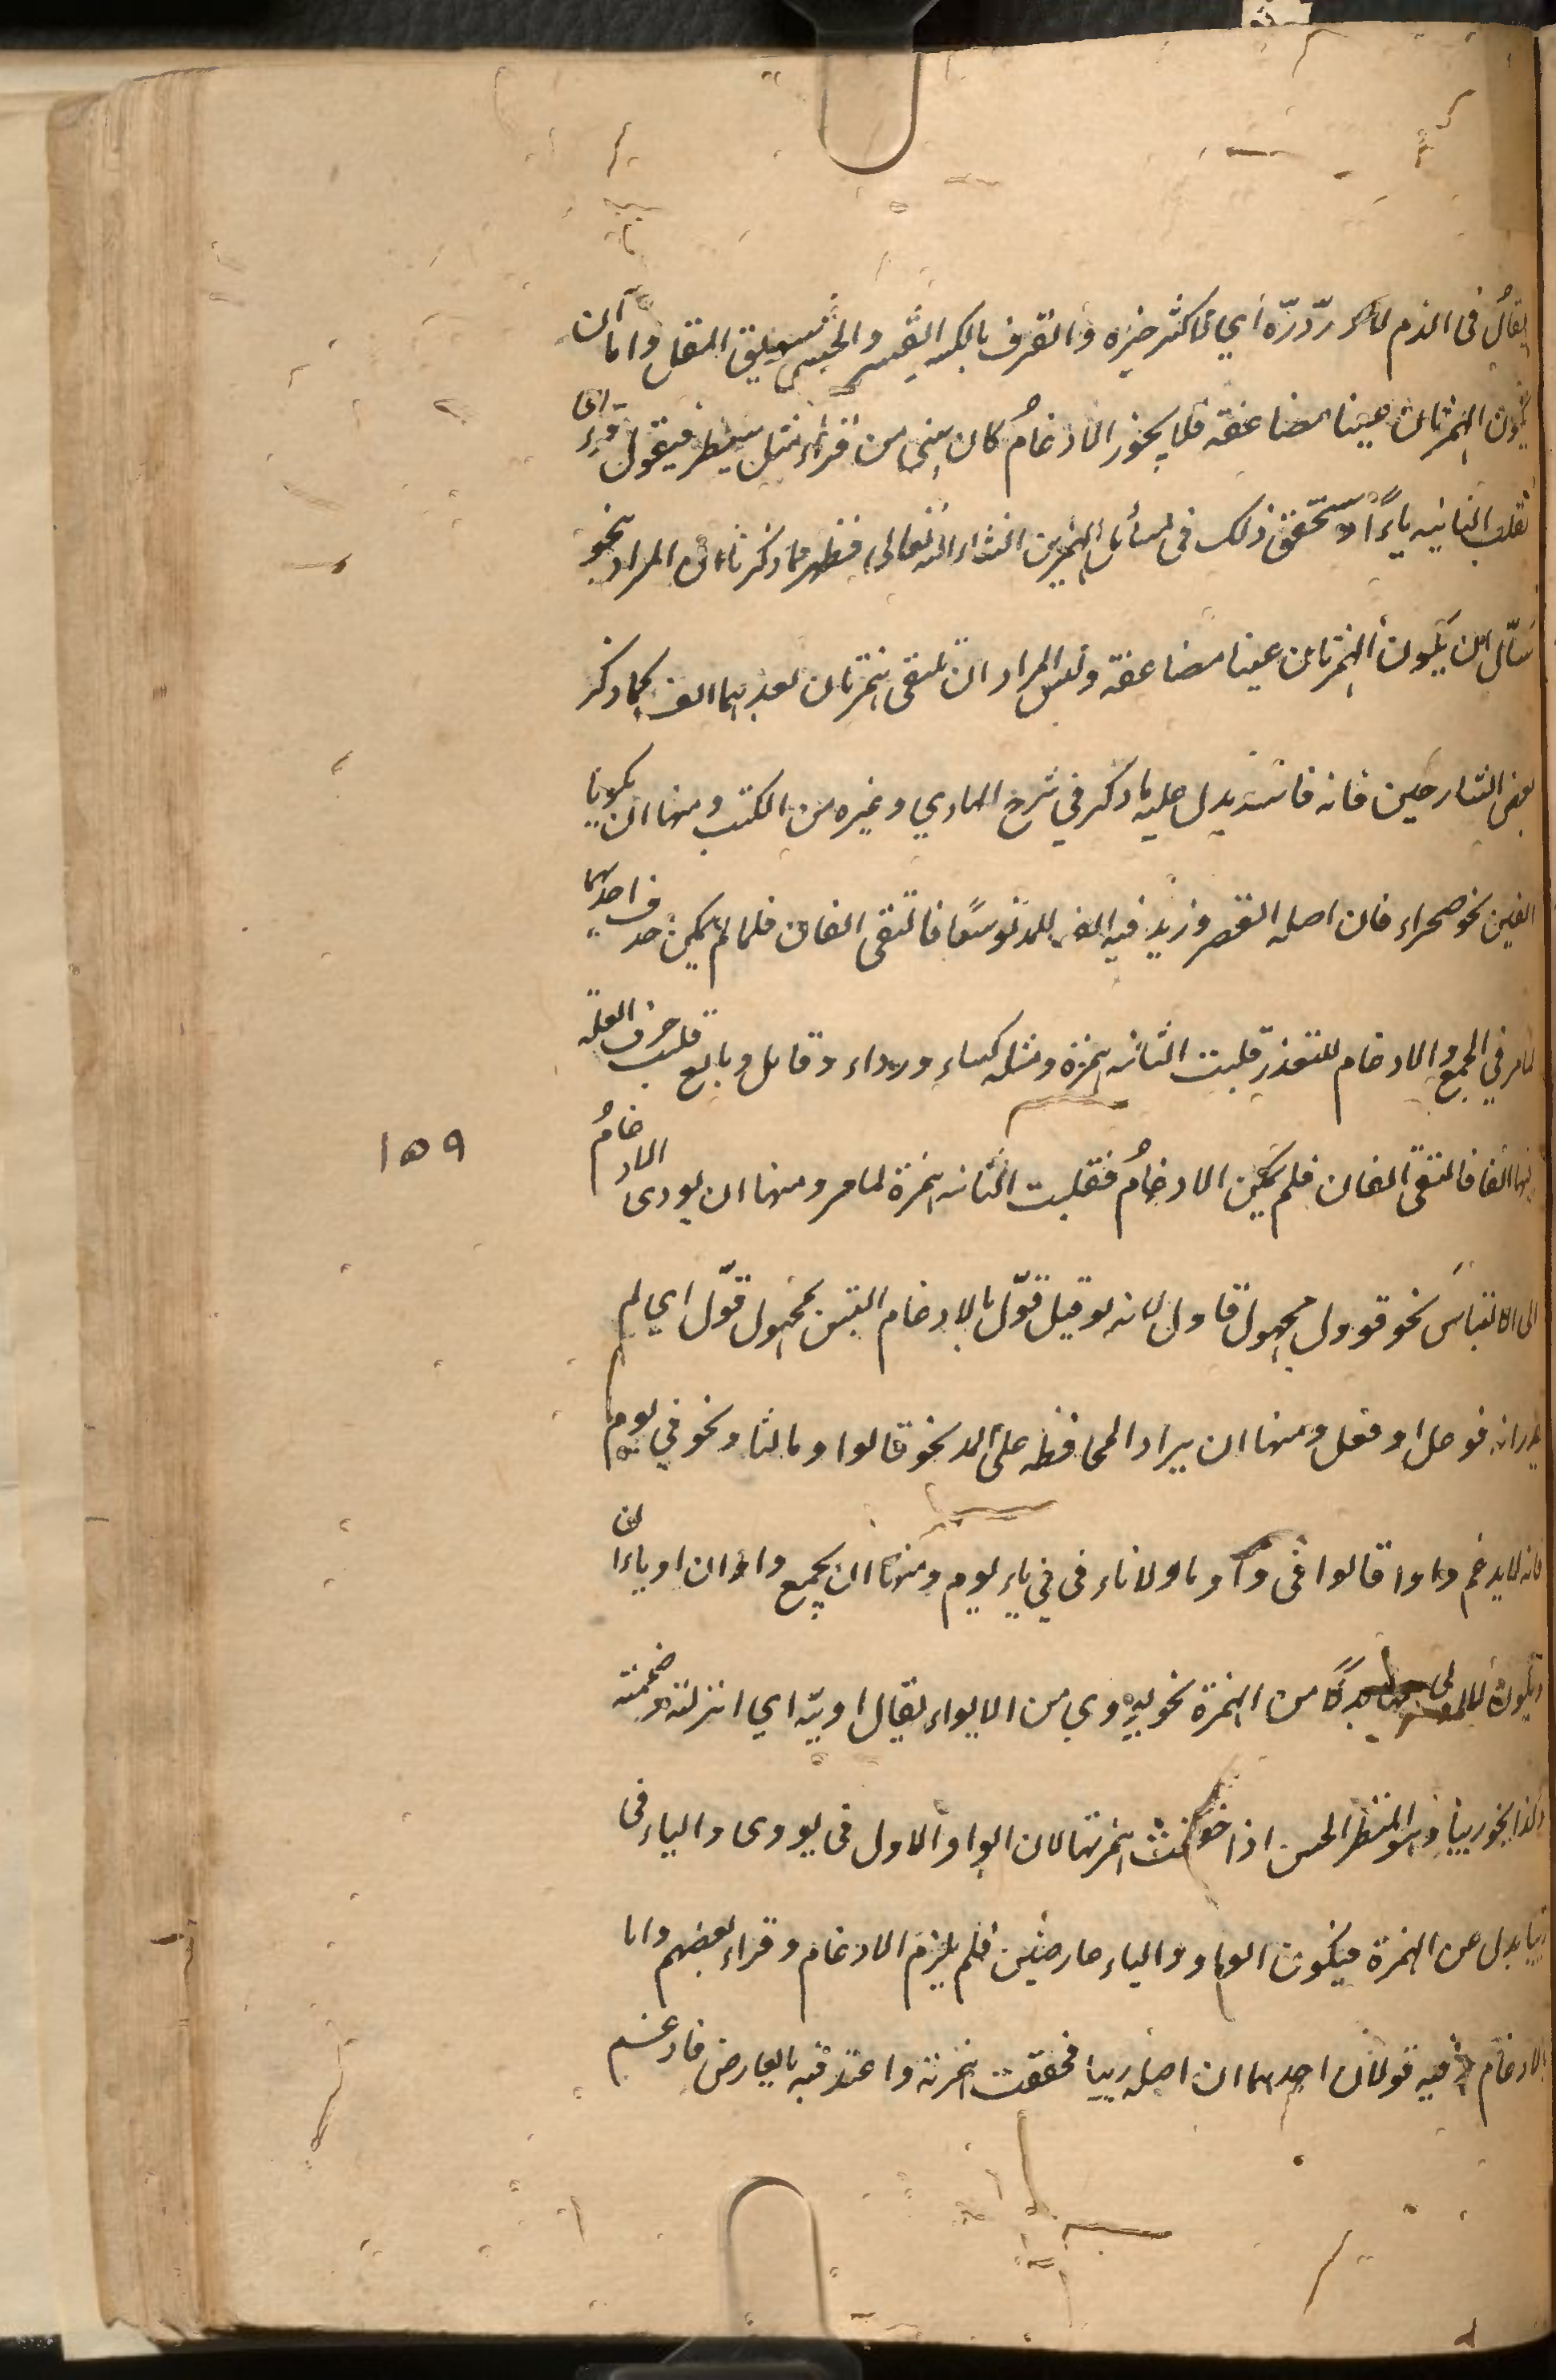 يقال في الذم لا در درّه اي لا كثر خيره والقرف بالكسر القشر والحتى سويق المقل واما ان
يكون الهمزتان عينا مضاعفة فلا يجوز الادغام كان يبنى من قراء مثل سبطر فيقول قرءاى
تقلب الثانية ياءً وستحقق ذلك في مسائل التمرين انشاء الله تعالى فظهر مما ذكرنا ان المراد بنحو
سّأل ان يكون الهمزتان عينا مضاعفة وليس المراد ان تلتقى همزتان بعدهما الف كما ذكر
بعض الشارحين فانه فاسد يدل عليه ما ذكر في شرح الهادي وغيره من الكتب ومنها ان يكونا
الفين نحو صحراء فان اصله القصر وزيد فيه الف للمد توسعًا فالتقى الفان فلما لم يمكن حذف احديهما
لما مر في الجمع والادغام للتعذر قلبت الثانية همزة ومثله كساء ورداء وقايل وبايع قلب حرف العلة
فيها الفا فالتقى الفان فلم يمكن الادغامُ فقلبت الثانية همزة لما مر ومنها ان يودى الادغامُ
١٥٩
الى الالتباس نحو قوول مجهول قاول لانه لو قيل قوّل بالادغام التبس بمجهول قوّل اي لم
يدر انه فوعل او فعل ومنها ان يراد المحافظة على المد نحو قالوا وما لنا ونحو في يوم
فانه لا يدغم واو قالوا في واو وما ولا ياء في في ياء يوم ومنها ان يجمع واوان او ياءان
وتكون الاولى بدلًا من الهمزة نحو يووي من الايواء يقال اويته اي انزلته وضممته
وكذا نحو رييا وهو المنظر الحسن اذا خففت همزتها لان الواو الاول في يووى والياء في
رييا بدل من الهمزة فيكون الواو والياء عارضين فلم يلزم الادغام وقراء بعضهم واما
بالادغام وفيه قولان احدهما ان اصله رييا فخففت همزته واعتد فيه بالعارض فادغم